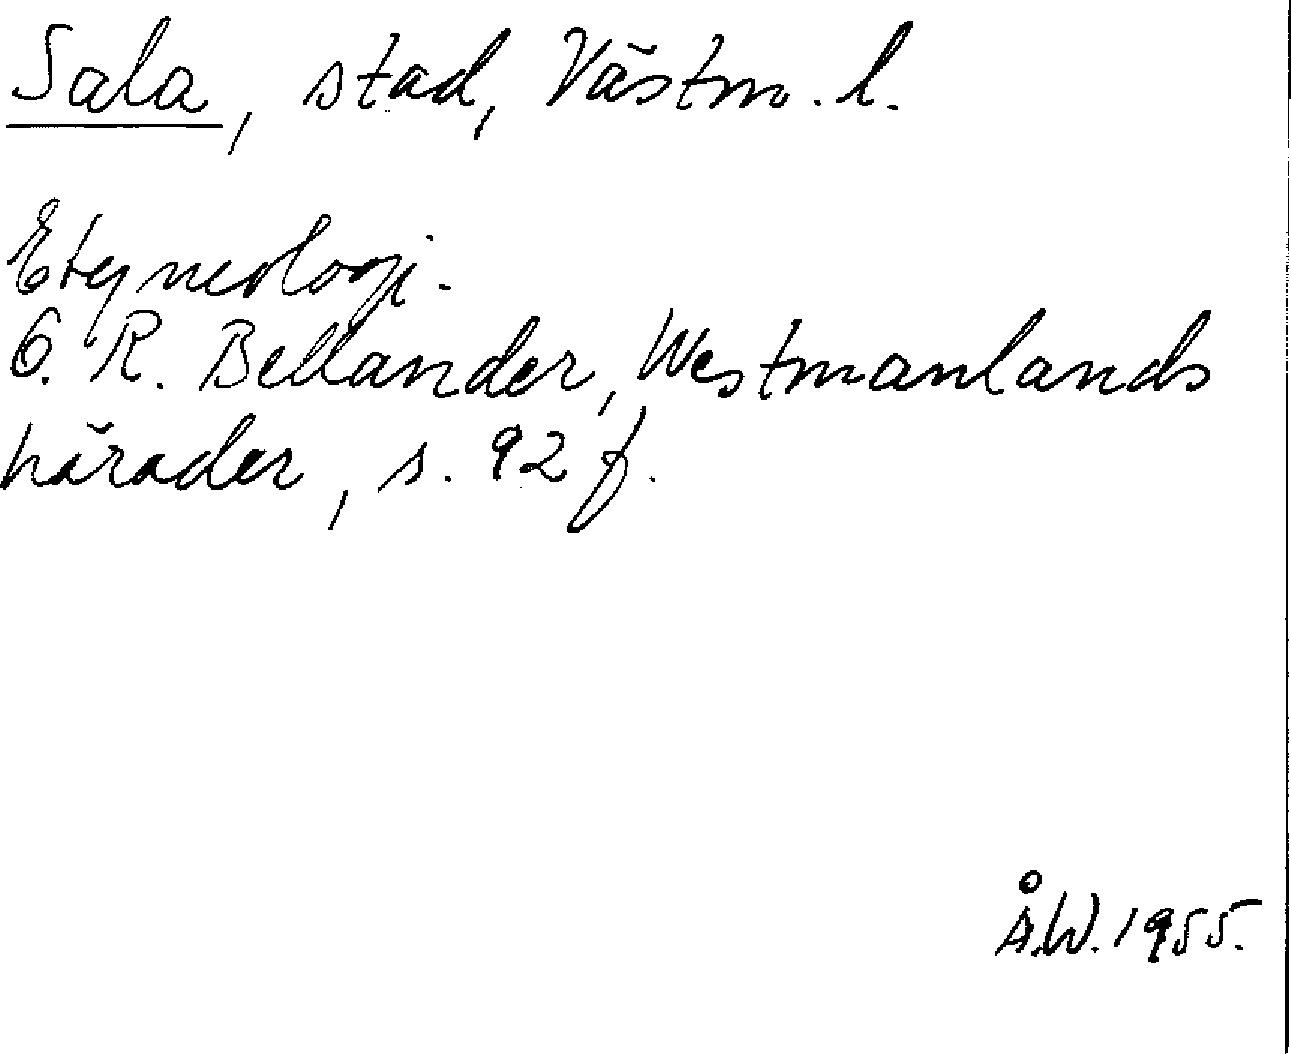 Sala, stad, Västm. l.
Etymologi.
E. R. Bellander, Westmanlands
härader, s. 92 f.
Å.W. 1955.